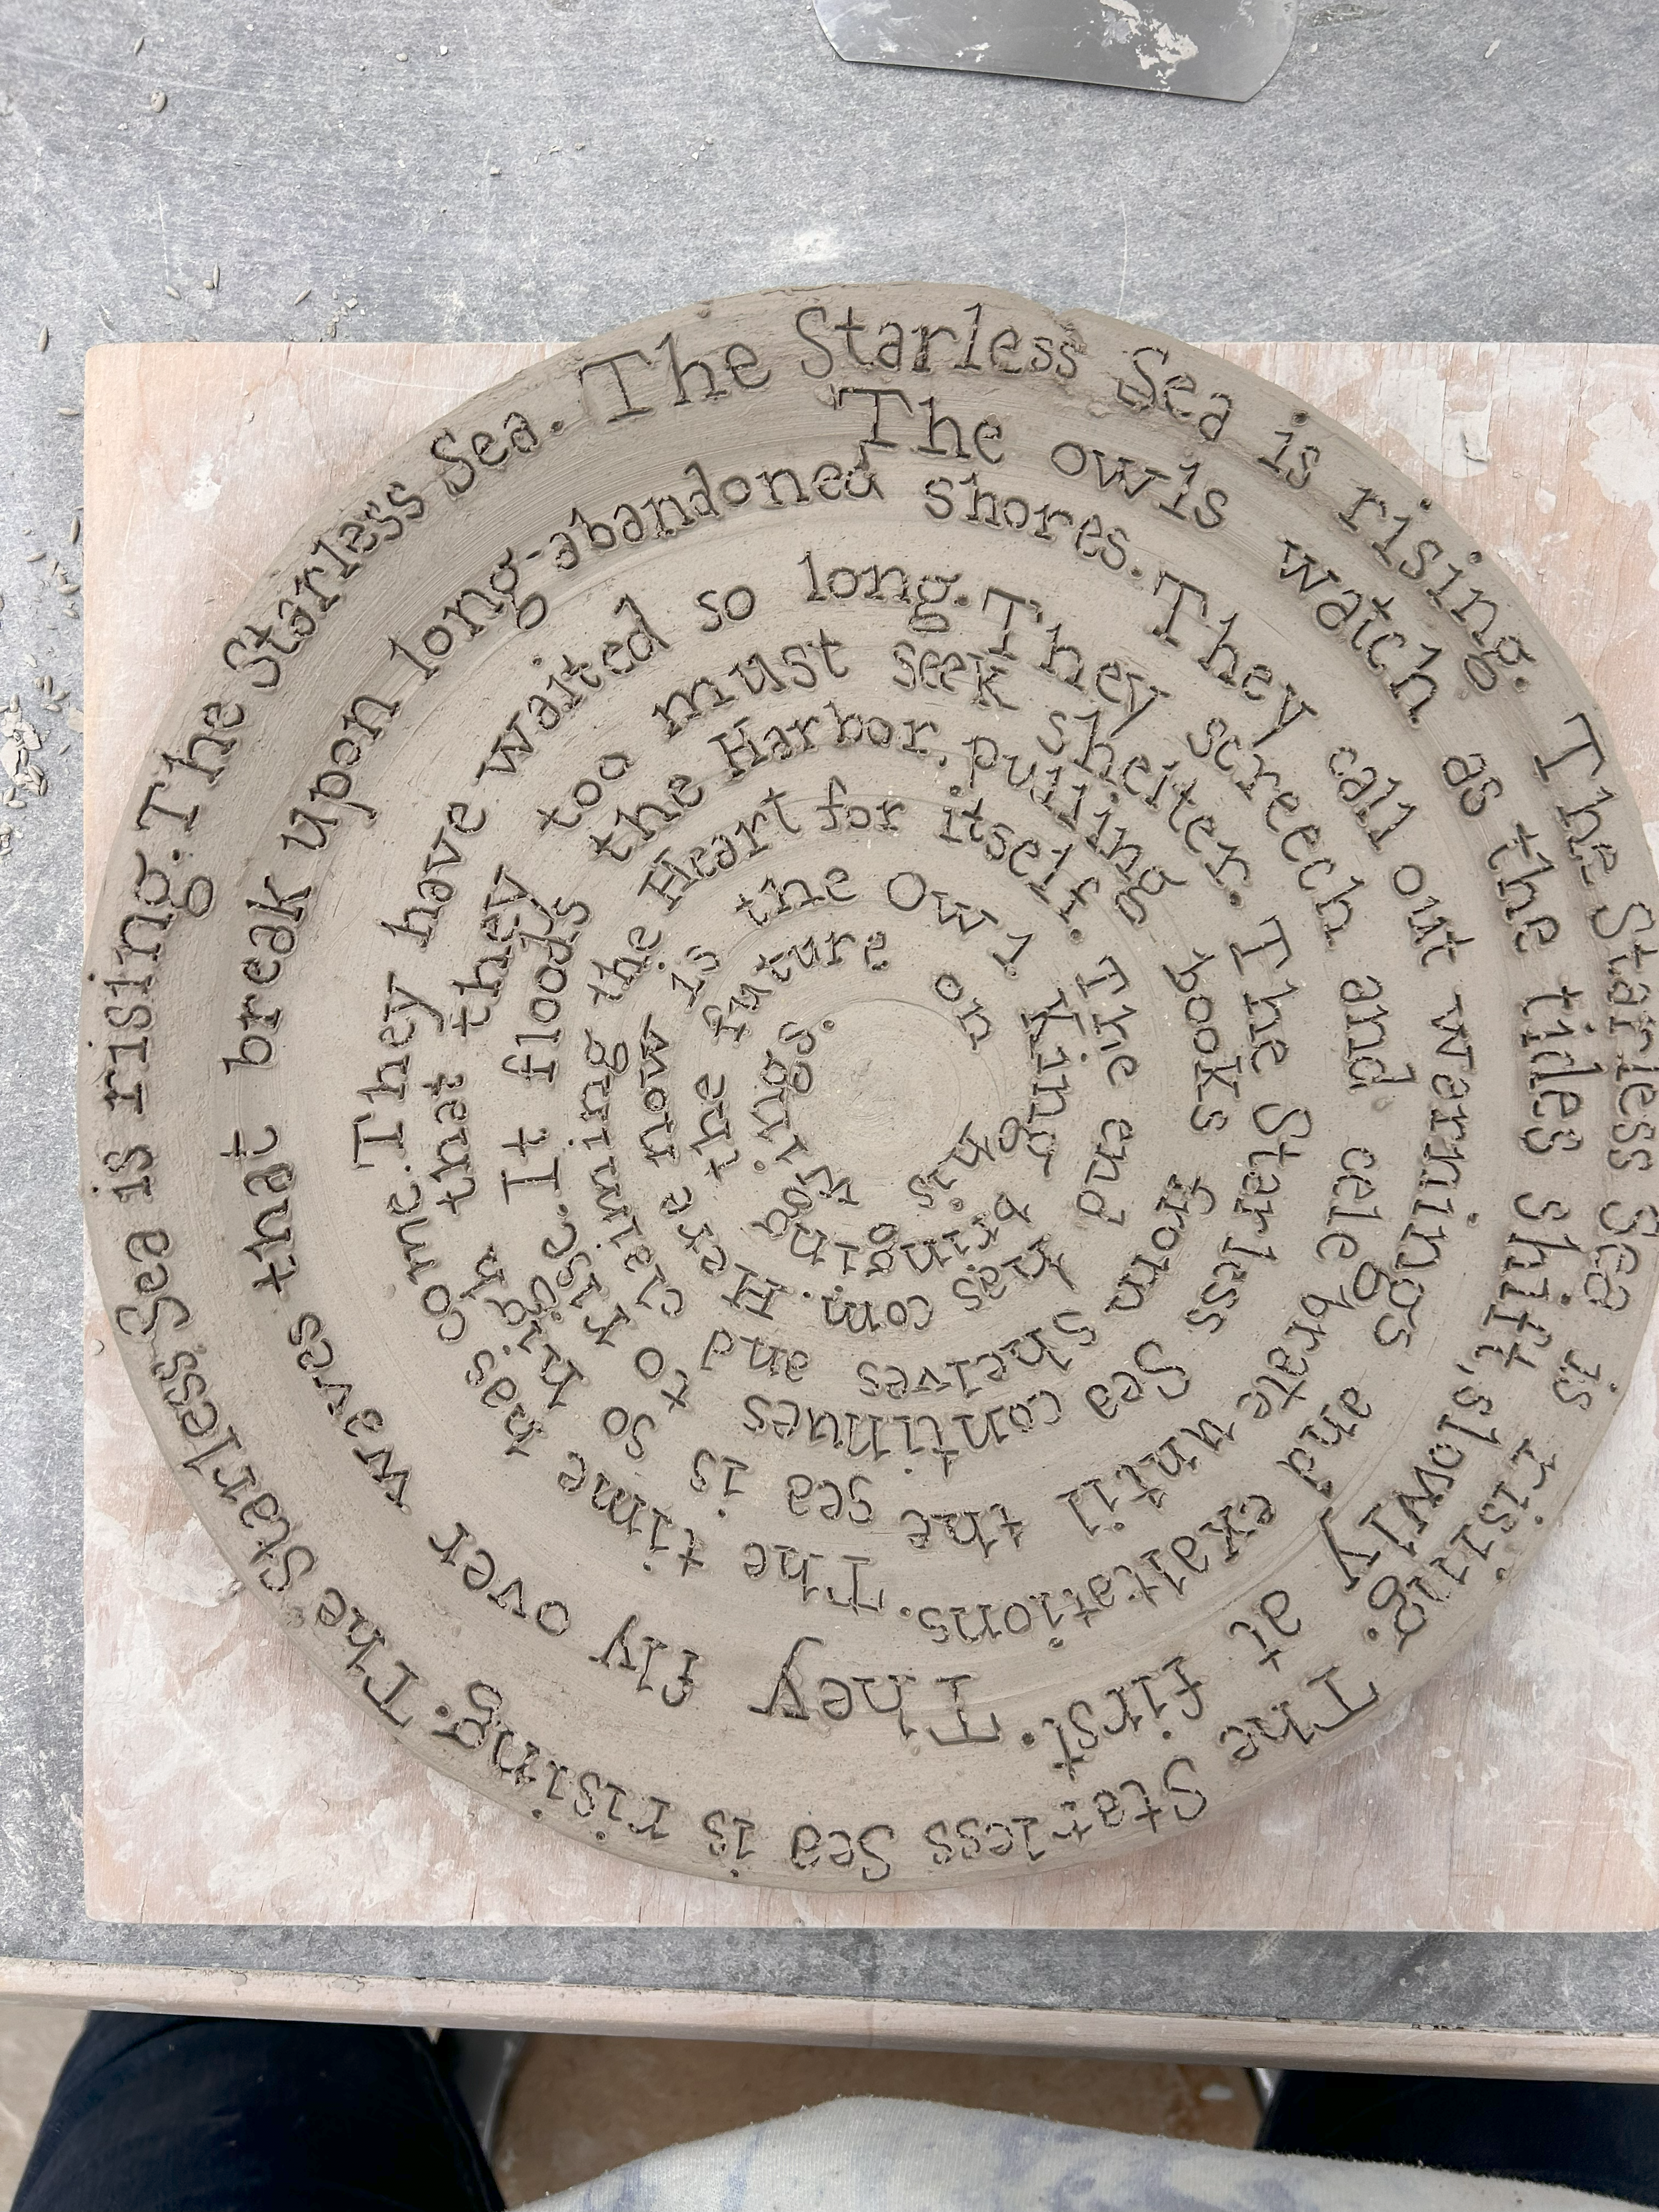 The Starless Sea is rising. The Starless Sea is rising. The Starless Sea is rising. The Starless Sea is rising. The Starless Sea.
The owls watch as the tides shift, slowly at first. They fly over waves that break upon long-abandoned shores.
They call out warnings and exaltations. The time has come. They have waited so long.
They screech and celebrate until the sea is so high that they too must seek shelter.
The Starless Sea continues to rise. It floods the Harbor, pulling books from Shelves and claiming the Heart for itself.
The end has com. Here now is the Owl King, bringing the future on his wings.